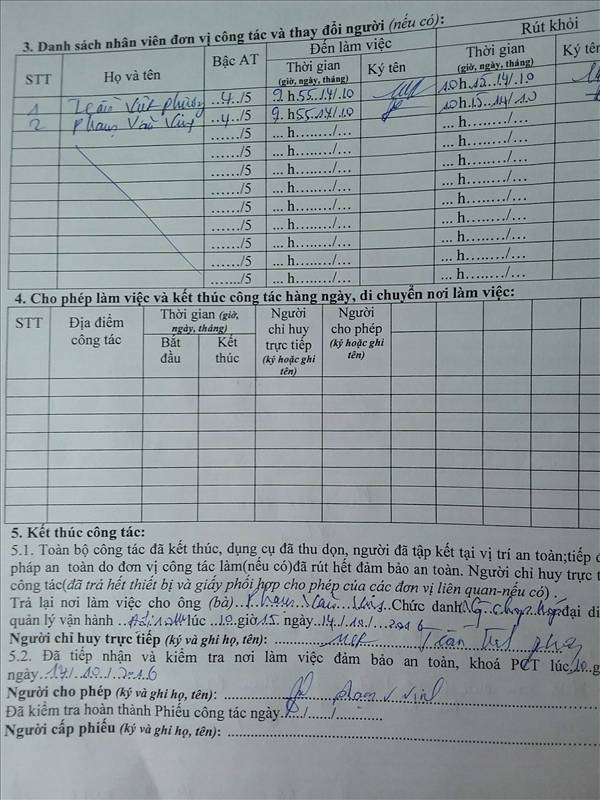 3. Danh sách nhân viên đơn vị công tác và thay đổi người (nếu có):
STT Họ và tên Bậc AT Đến làm việc Rút khỏi
Thời gian (giờ, ngày, tháng) Ký tên Thời gian (giờ, ngày, tháng) Ký tên
1 Trần Việt Phương ..4../5 9 h.55..14/.10 10h.15..14/.10
2 Phạm Văn Vinh ..4../5 9. h55..14/.10 10h.15...14/.10
....../5 ... h......../... ... h......../...
....../5 ... h......../... ... h......../...
....../5 ... h......../... ... h......../...
....../5 ... h......../... ... h......../...
....../5 ... h......../... ... h......../...
....../5 ... h......../... ... h......../...
....../5 ... h......../... ... h......../...
....../5 ... h......../... ... h......../...
....../5 ... h......../... ... h......../...
4. Cho phép làm việc và kết thúc công tác hàng ngày, di chuyển nơi làm việc:
STT Địa điểm công tác Thời gian (giờ, ngày, tháng) Người chỉ huy trực tiếp (ký hoặc ghi tên) Người cho phép (ký hoặc ghi tên)
Bắt đầu Kết thúc
5. Kết thúc công tác:
5.1. Toàn bộ công tác đã kết thúc, dụng cụ đã thu dọn, người đã tập kết tại vị trí an toàn;tiếp
pháp an toàn do đơn vị công tác làm(nếu có)đã rút hết đảm bảo an toàn. Người chỉ huy trực
công tác(đã trả hết thiết bị và giấy phối hợp cho phép của các đơn vị liên quan-nếu có) .
Trả lại nơi làm việc cho ông (bà)..Phạm..Văn..Vinh..Chức danh.......đại di
quản lý vận hành ........lúc ..10..giờ.15. ngày..14./.10./...2016
Người chỉ huy trực tiếp (ký và ghi họ, tên): Trần Việt Phương
5.2. Đã tiếp nhận và kiểm tra nơi làm việc đảm bảo an toàn, khoá PCT lúc.10.g
ngày..14./..10../.2016
Người cho phép (ký và ghi họ, tên): Phạm V Vinh
Đã kiểm tra hoàn thành Phiếu công tác ngày...../....../............
Người cấp phiếu (ký và ghi họ, tên):